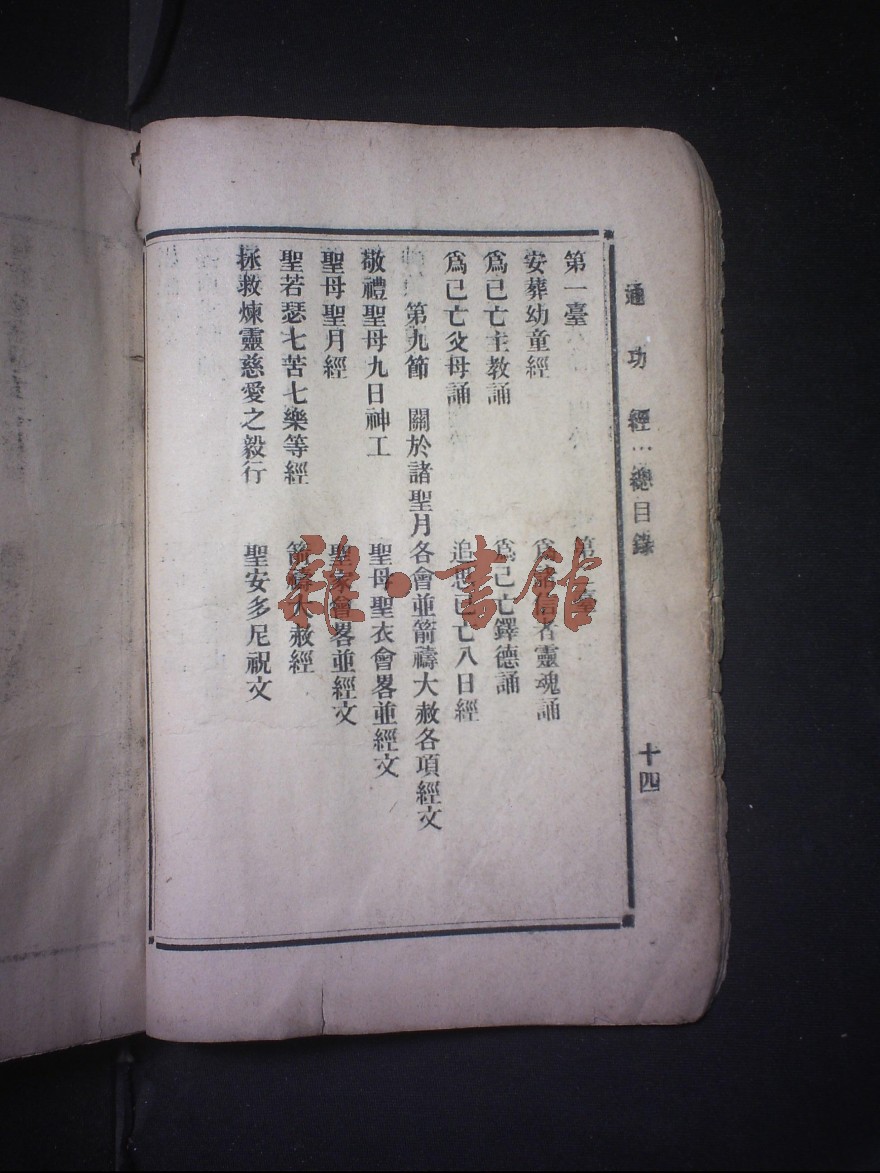 通功經…總目錄
十四
第一臺　第二臺
安葬幼童經　為求信者靈魂誦
為已亡主教誦　為已亡鐸德誦
為已亡父母誦　追思已亡八日經
第九節　關於諸聖月各會並箭禱大赦各項經文
敬禮聖母九日神工　聖母聖衣會畧並經文
聖母聖月經　聖家會畧並經文
聖若瑟七苦七樂等經　箭禱大赦經
拯救煉靈慈愛之毅行　聖安多尼祝文
雜·書館